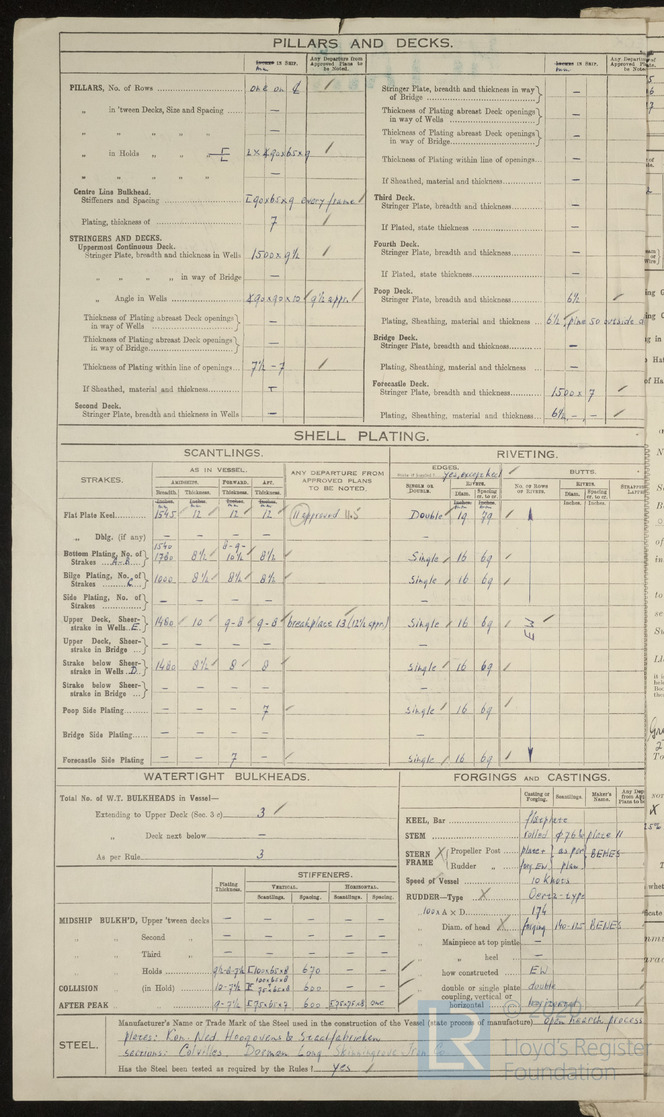 PILLARS AND DECKS.
in Ship.
Any Departure from Approved Plans to be Noted.
PILLARS, No. of Rows
one on ℄
„ in 'tween Decks, Size and Spacing —
„ „ „ „ —
„ in Holds „ „
„ „ „ „ —
Centre Line Bulkhead.
Stiffeners and Spacing 90x65x9 every frame
Plating, thickness of 7
STRINGERS AND DECKS.
Uppermost Continuous Deck.
Stringer Plate, breadth and thickness in Wells 1500x9½
„ „ „ „ in way of Bridge —
„ Angle in Wells 90x90x10 9½ appr.
Thickness of Plating abreast Deck openings in way of Wells —
Thickness of Plating abreast Deck openings in way of Bridge —
Thickness of Plating within line of openings 7½ - 7
If Sheathed, material and thickness
Second Deck.
Stringer Plate, breadth and thickness in Wells —
in Ship.
Stringer Plate, breadth and thickness in way of Bridge —
Thickness of Plating abreast Deck openings in way of Wells —
Thickness of Plating abreast Deck openings in way of Bridge —
Thickness of Plating within line of openings —
If Sheathed, material and thickness —
Third Deck.
Stringer Plate, breadth and thickness —
If Plated, state thickness —
Fourth Deck.
Stringer Plate, breadth and thickness —
If Plated, state thickness —
Poop Deck.
Stringer Plate, breadth and thickness 6½
Plating, Sheathing, material and thickness 6½, pine 50 outside
Bridge Deck.
Stringer Plate, breadth and thickness —
Plating, Sheathing, material and thickness —
Forecastle Deck.
Stringer Plate, breadth and thickness 1500x7
Plating, Sheathing, material and thickness 6½ - , -
SHELL PLATING.
SCANTLINGS.
RIVETING.
STRAKES.
AS IN VESSEL.
AMIDSHIPS. FORWARD. AFT.
Breadth. Thickness. Thickness. Thickness.
ANY DEPARTURE FROM APPROVED PLANS TO BE NOTED.
EDGES.
SINGLE OR DOUBLE.
RIVETS.
Diam. Spacing cr. to cr.
No. of Rows of Rivets.
BUTTS.
RIVETS.
Diam. Spacing cr. to cr.
Flat Plate Keel 1545 12 12 12 11 approved 11.5 Double 19 79
„ Dblg. (if any) — — — — —
Bottom Plating, No. of Strakes A-B 1540 1780 8½ 8-9- 10½ 8½ Single 16 69
Bilge Plating, No. of Strakes C 1000 8½ 8½ 8½ Single 16 69
Side Plating, No. of Strakes — — — — —
Upper Deck, Sheerstrake in Wells E 1480 10 9-8 9-8 breakplate 13 (12½ appr.) Single 16 69
EW
Upper Deck, Sheerstrake in Bridge — — — — —
Strake below Sheerstrake in Wells D 1480 8½ 8 8 Single 16 69
Strake below Sheerstrake in Bridge — — — — —
Poop Side Plating — — — 7 Single 16 69
Bridge Side Plating — — — — —
Forecastle Side Plating — — 7 — Single 16 69
WATERTIGHT BULKHEADS.
Total No. of W.T. BULKHEADS in Vessel—
Extending to Upper Deck (Sec. 3 c) 3
„ Deck next below —
As per Rule 3
Plating Thickness.
STIFFENERS.
VERTICAL. HORIZONTAL.
Scantlings. Spacing. Scantlings. Spacing.
MIDSHIP BULKH'D, Upper 'tween decks — — — — —
„ „ Second „ — — — — —
„ „ Third „ — — — — —
„ „ Holds 9½-8-7½ 100x65x8 670 — —
COLLISION „ (in Hold) 10-7½ 100x65x8 75x65x8 600 — —
AFTER PEAK „ „ 9-7½ 75x65x7 600 75x75x8 one
FORGINGS AND CASTINGS.
Casting or Forging. Scantlings. Maker's Name.
KEEL, Bar flatplate
STEM rolled φ 76 & plate 11
STERN FRAME Propeller Post as per BENES
Rudder „ EW plan
Speed of Vessel 10 Knots
RUDDER—Type Oertz-type
100x A x D 174
„ Diam. of head forging 140-125 BENES
„ Mainpiece at top pintle —
„ „ heel —
„ how constructed EW
„ double or single plate double
„ coupling, vertical or horizontal horizontal
STEEL.
Manufacturer's Name or Trade Mark of the Steel used in the construction of the Vessel (state process of manufacture). Open hearth process
plates: Kon. Ned. Hoogovens & Staalfabrieken
sections: Colvilles, Dorman Long, Skinningrove Iron Co.
Has the Steel been tested as required by the Rules? yes
LR
Lloyd's Register
Foundation